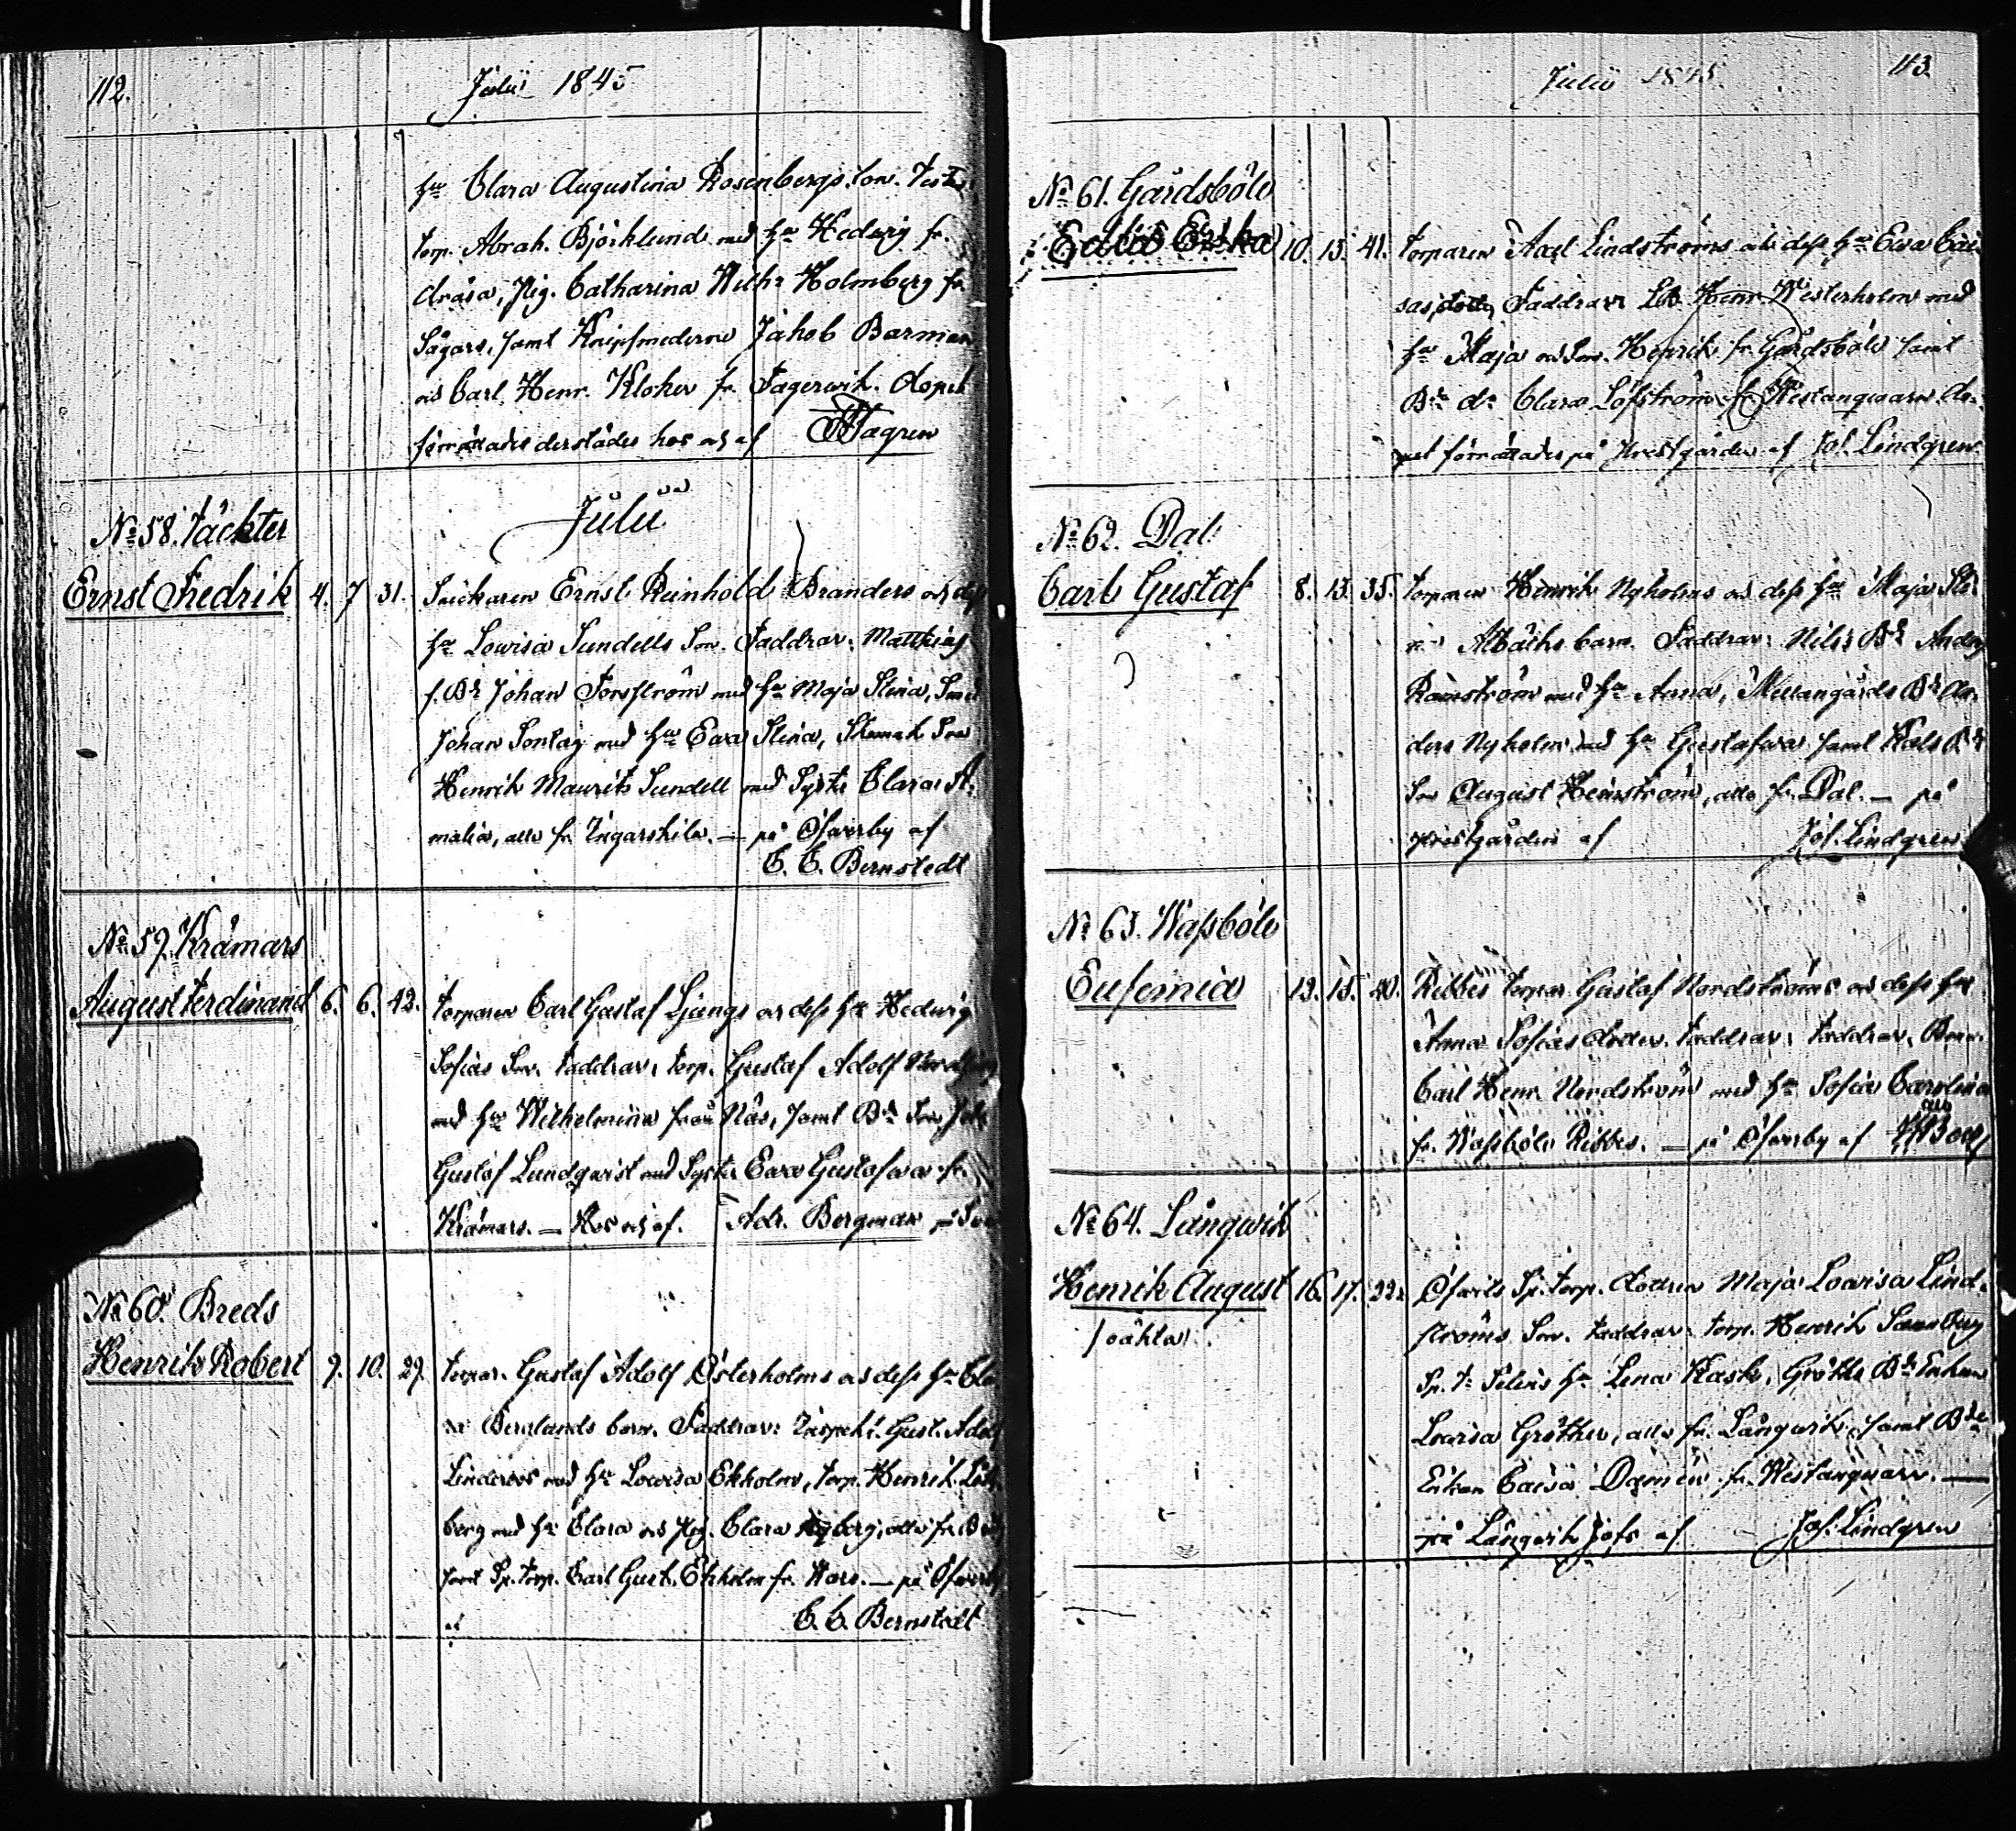 112.
Julii 1845
hu Clara Augustina Rosenbergs son. Test:
torp. Abrah. Björklund med hu Hedvig fr.
Pig. Catharina Wilh:a Holmberg fr.
Sågars, samt Knipsmederne Jakob Barman
och Carl Henr. Kloker fr. Fagerwik. Dopet
förrättades derstädes hos och af
Julii
No 58. Täckter
Ernst Fredrik 4. 7 31. Snickaren Ernst Reinhold Branders och dess
hu Lovisa Sundells Son. Faddrar: Matthias
f. Bd Johan Forsström med hu Maja Stina, Smed
Johan Sontag med hu Eva Stina, Son
Henrik Maurits Sundell med Syster Clara A-
malia, alla fr. Ingarskila. — på Ofverby af
C. C. Bernstedt
No 59. Krämars
August Ferdinand 6. 6. 42. torparen Carl Gustaf Ljungs och dess hu Hedwig
Sofias Son. Faddrar: torp. Gustaf Adolf
med hu Wilhelmina från Näs, samt Bd Son
Gustaf Lundqvist med Syster Eva Gustafva fr.
Krämars. — Hos och af Adr. Bergman
No 60. Breds
Henrik Robert 9. 10. 29. torpar. Gustaf Adolf Österholms och dess hu Cla-
ra Berglunds barn. Faddrar: Inspekt. Gust. Adolf
Linderoos med hu Lovisa Ekholm, torp. Henrik
berg med hu Clara och Pig. Clara Nyberg, alla fr.
samt Sp. torp. Carl Gust. Ekholm fr. Wars. — på Ofverby
af C. C. Bernstedt
Julii 1845
113.
No 61. Gårdsböle
Edla Erika 10. 13. 41. torparen Axel Lindströms och dess hu Eva Caj-
sas dotter. Faddrar: Henr. Westerholm med
hu Maja och Son Henrik fr. Gårdsböle samt
Bde dr Clara Löfström fr. Westanqvarn. Do-
pet förrättades på Prestgården af Jos. Lindgren
No 62. Dal
Carl Gustaf 8. 13. 35. torparen Henrik Nyholms och dess hu Maja Sti-
na barn. Faddrar: Nils Bd Anders
Ramström med hu Anna, Mellangårds Bd An-
ders Nyholm med hu Gustafva samt
Son August Heinström, alla fr. Dal. — på
Prestgården af Jos. Lindgren
No 63. Wassböle
Eufemia 12. 15. 40. Ribbes torpar. Gustaf Nordströms och dess hu
Anna Sofias dotter. Faddrar: Faddrar: Bond.
Carl Henr. Nordström med hu Sofia Carolina
fr. Wassböle Ribbes. — på Ofverby af
No 64. Långwik
Henrik August 16. 17. 22. Ofvits Sp. torp. dottren Maja Lovisa Lind-
(oäkta) ströms Son. Faddrar: torp. Henrik Sandberg
Sp. hu Lena Kask, Gröthe Bd Enkan
Lovisa Gröther, alla fr. Långwik, samt Bde
Enkan Caisa Damén fr. Westanqvarn. —
på Långwik Jofs af Jos. Lindgren